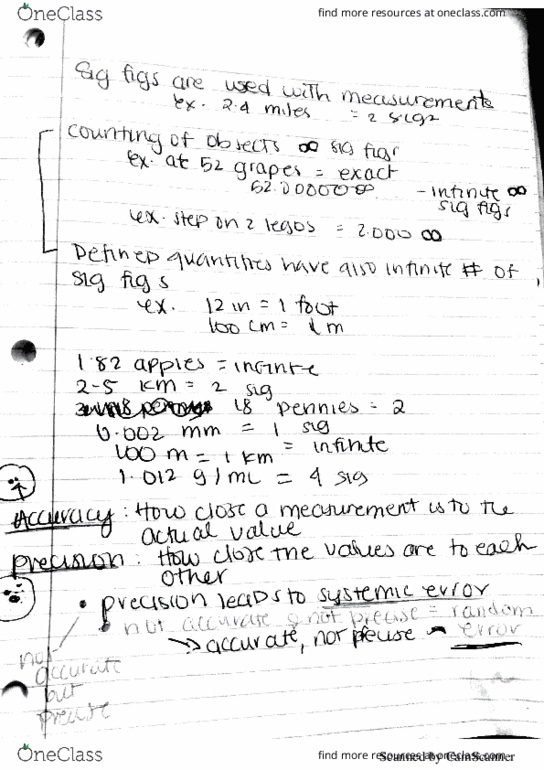 OneClass
find more resources at oneclass.com
Sig figs are used with measurements
ex. 2.4 miles = 2 sigs
counting of objects ∞ sig figs
ex. at 52 grapes = exact
52.00000∞ - infinite ∞
sig figs
ex. step on 2 legos = 2.000 ∞
Defined quantities have also infinite # of
sig figs
ex. 12 in = 1 foot
100 cm = 1 m
1.82 apples = infinite
2-5 km = 2 sig
18 pennies = 2
0.002 mm = 1 sig
100 m = 1 km = infinite
1.012 g/mL = 4 sig
Accuracy: How close a measurement is to the
actual value
precision: How close the values are to each
other
• precision leads to systemic error
• not accurate & not precise = random
→ accurate, not precise error
not
accurate
but
precise
OneClass
find more resources at oneclass.com
Scanned by CamScanner